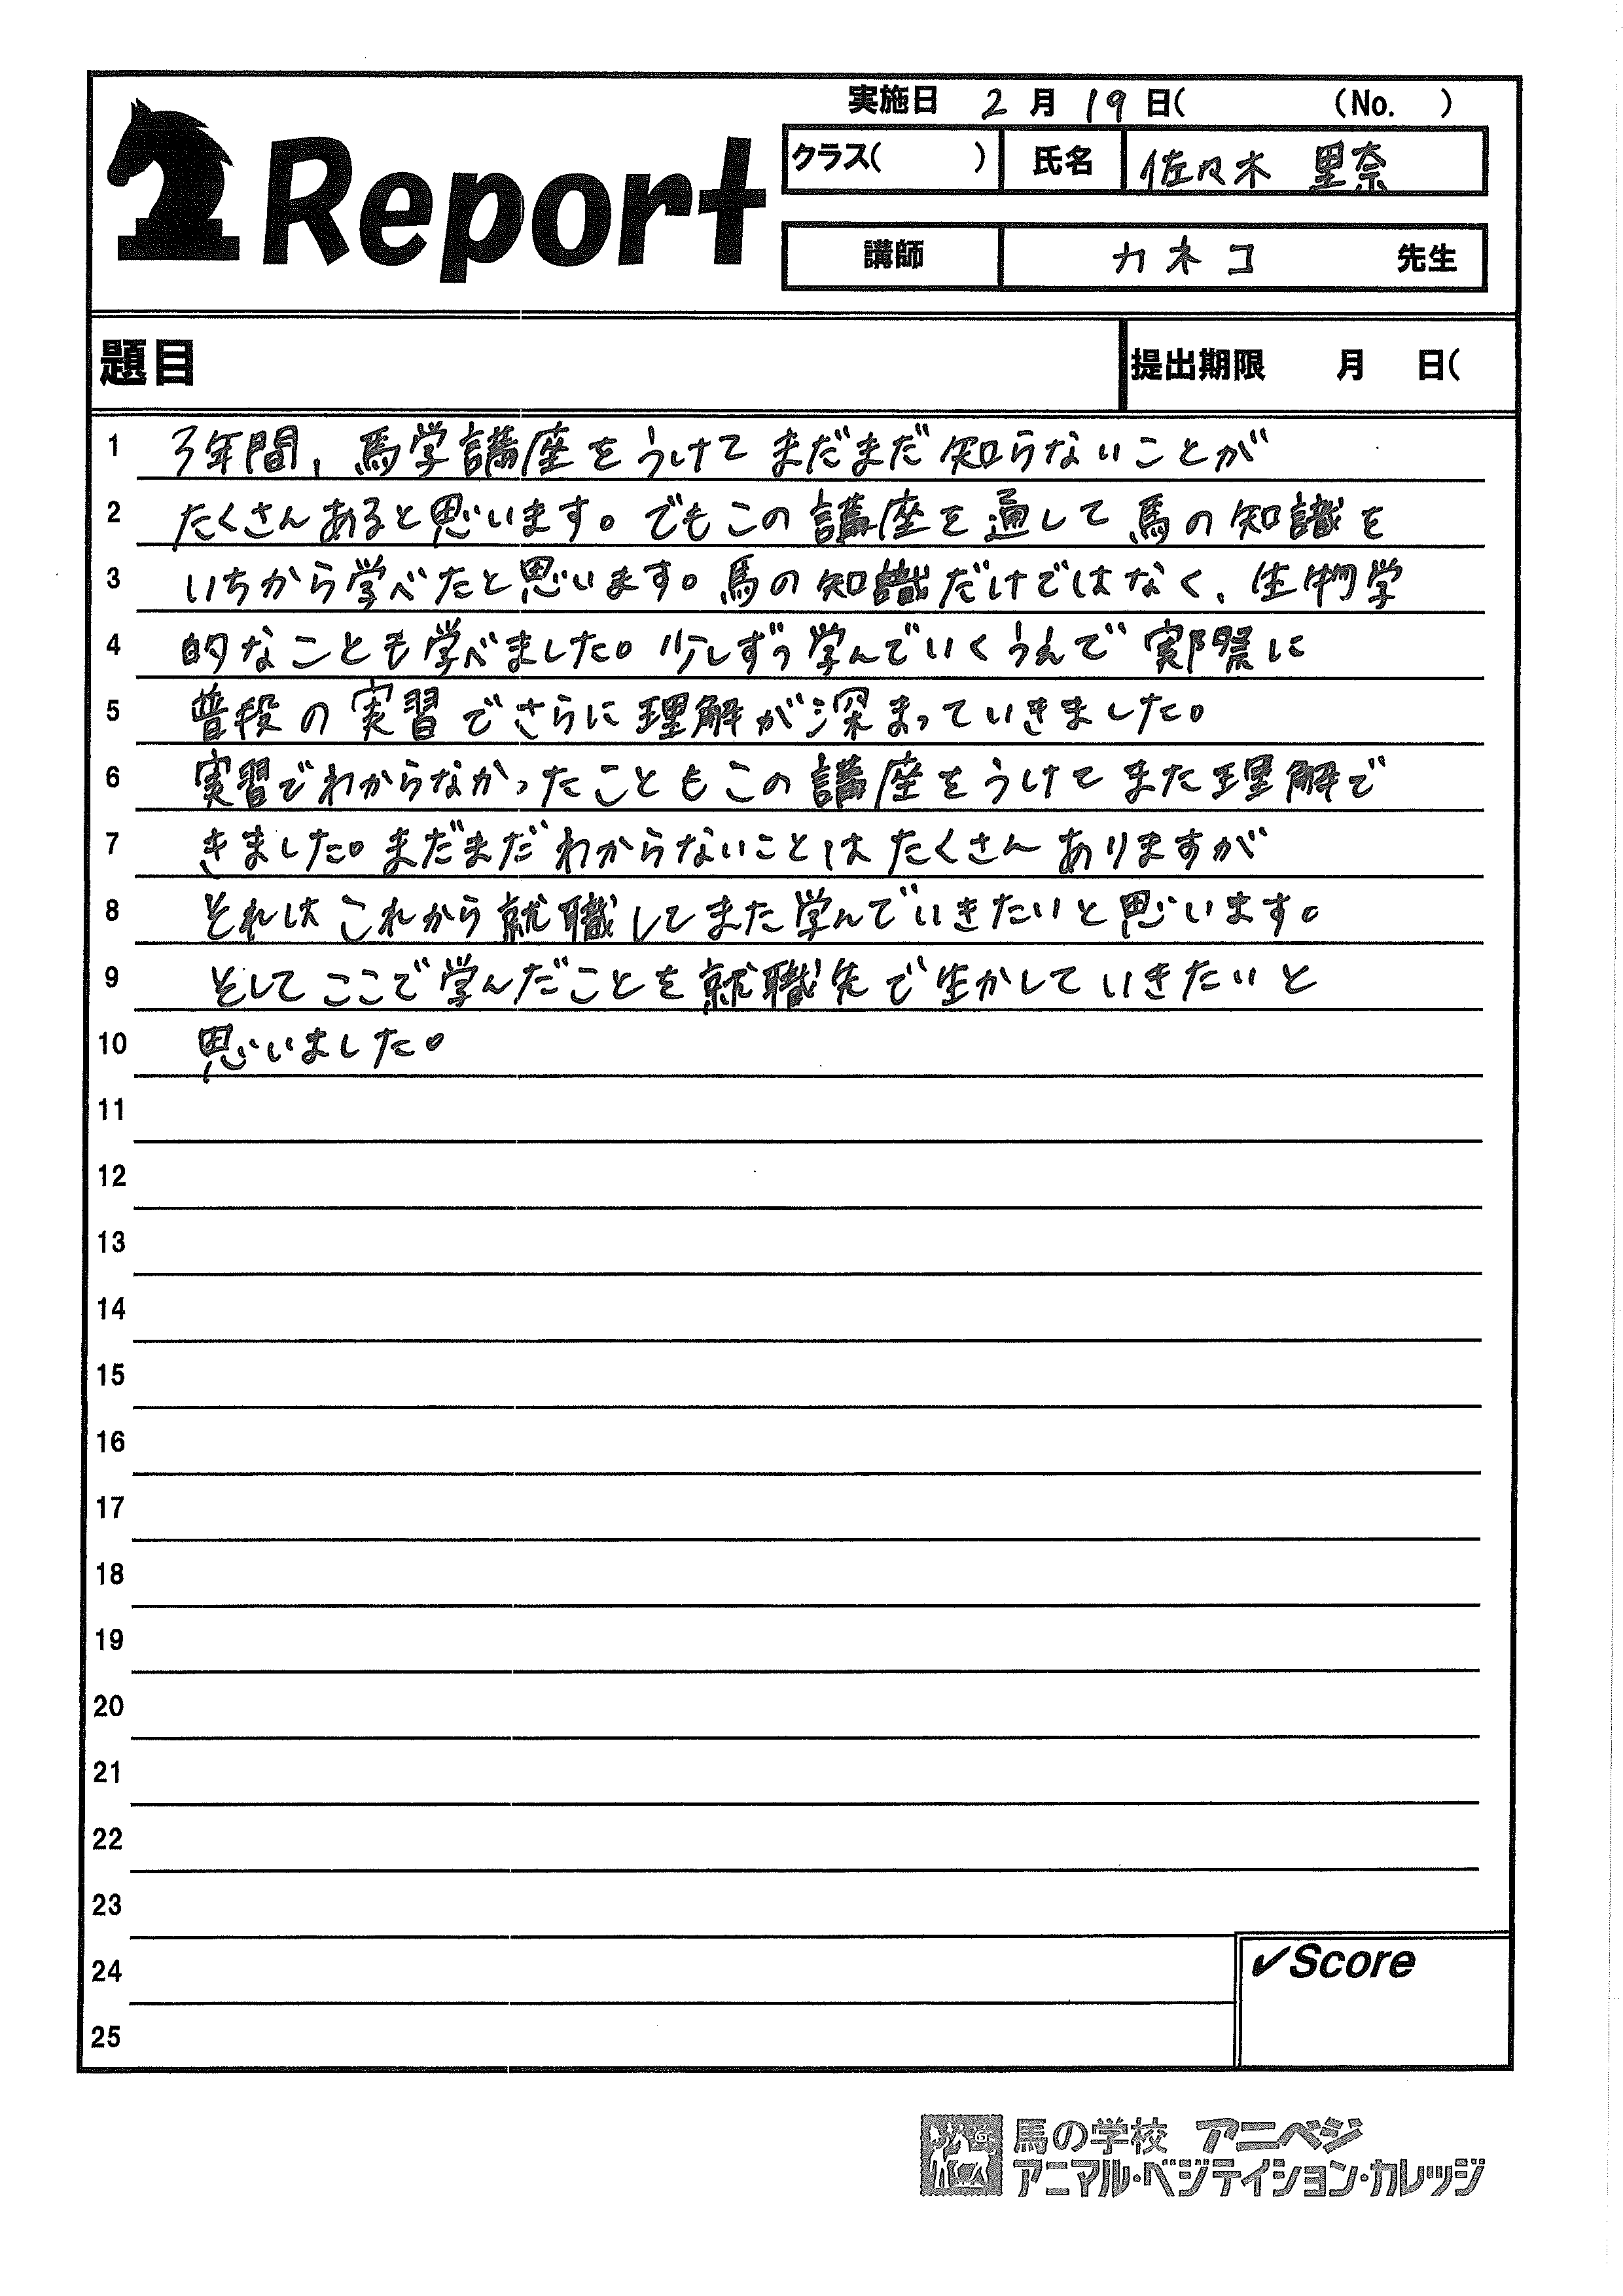 実施日 2月19日( (No. )
Report
クラス( ) 氏名 佐々木 里奈
講師 カネコ 先生
題目 提出期限 月 日(
1 3年間、馬学講座をうけてまだまだ知らないことが
2 たくさんあると思います。でもこの講座を通して馬の知識を
3 いちから学べたと思います。馬の知識だけではなく、生物学
4 的なことも学べました。少しずつ学んでいくうえで実際に
5 普段の実習でさらに理解が深まっていきました。
6 実習でわからなかったこともこの講座をうけてまた理解で
7 きました。まだまだわからないことはたくさんありますが
8 それはこれから就職してまた学んでいきたいと思います。
9 そしてここで学んだことを就職先で生かしていきたいと
10 思いました。
11
12
13
14
15
16
17
18
19
20
21
22
23
24
✓Score
25
馬の学校 アニベジ
アニマル・ベジテイション・カレッジ